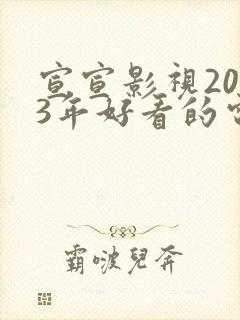 宣宣影視20
3年好看的
霸啵兒奔